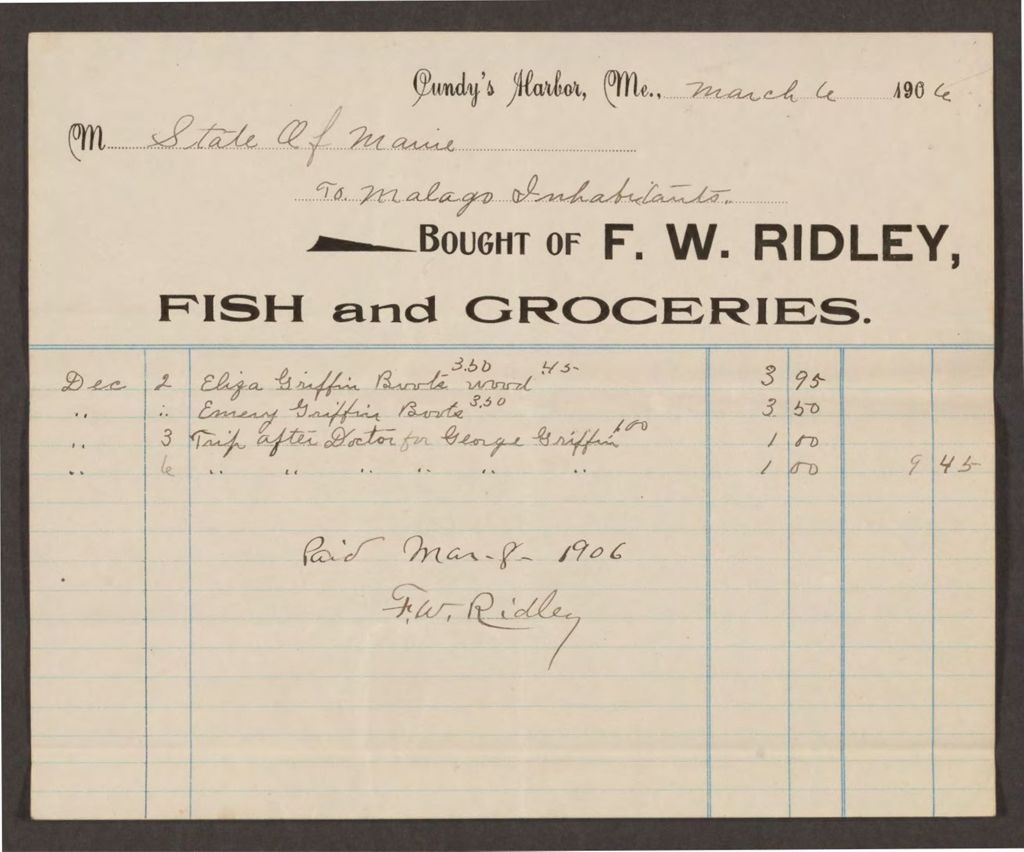 Cundy's Harbor, Me., March 6 1906
M State Of Maine
To. Malago Inhabitants.
BOUGHT OF F. W. RIDLEY,
FISH and GROCERIES.
Dec 2 Eliza Griffin Boots 3.50 wood 45 3 95
" " Emery Griffin Boots 3,50 3 50
" 3 Trip after Doctor for George Griffin 1 00 1 00
" 6 " " " " " " 1 00 9 45
Paid Mar-8- 1906
F.W. Ridley